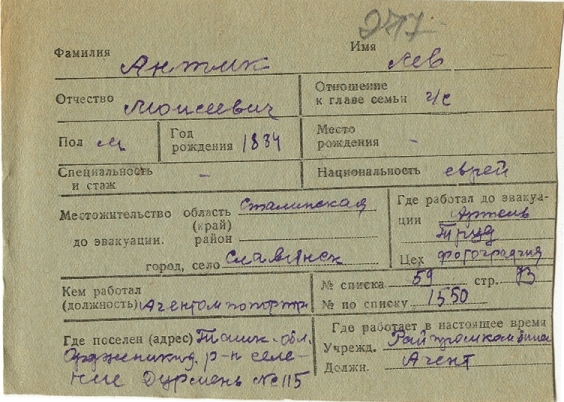 277
Фамилия Антик Имя Лев
Отчество Моисеевич Отношение к главе семьи г/с
Пол м Год рождения 1884 Место рождения -
Специальность и стаж - Национальность еврей
Местожительство область (край) Сталинская
до эвакуации. район
город, село Славянск
Где работал до эвакуа-
ции Артель
Труд
Цех фотография
Кем работал (должность) Агентом по портр № списка 59 стр. 73
№ по списку 1550
Где поселен (адрес) Ташк. обл.
Орджоникид. р-н селе-
ние Дурмень № 115
Где работает в настоящее время
Учрежд. Райпромкомбинат
Должн. Агент